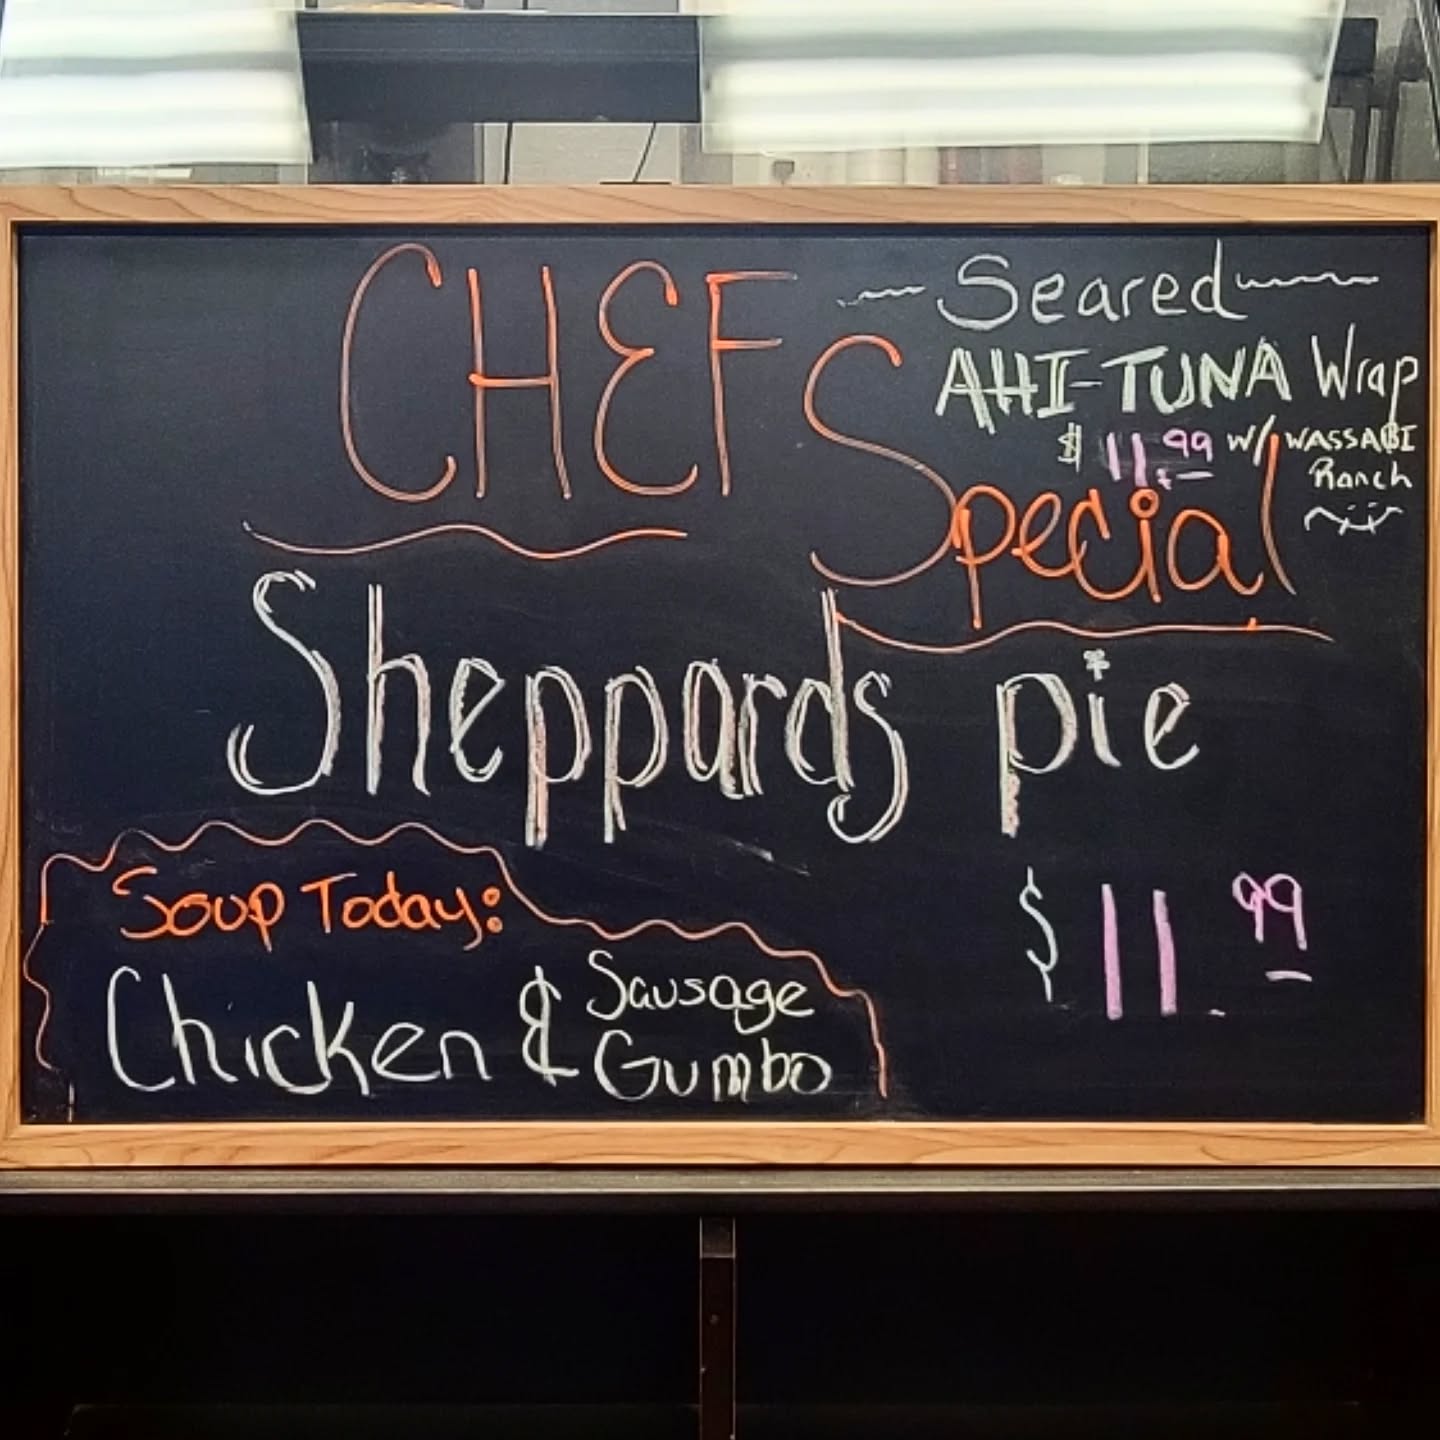 CHEF Special
Seared
AHI-TUNA Wrap
$11.99 W/ WASSABI
Ranch
Sheppards pie
$11.99
Soup Today:
Chicken & Sausage
Gumbo